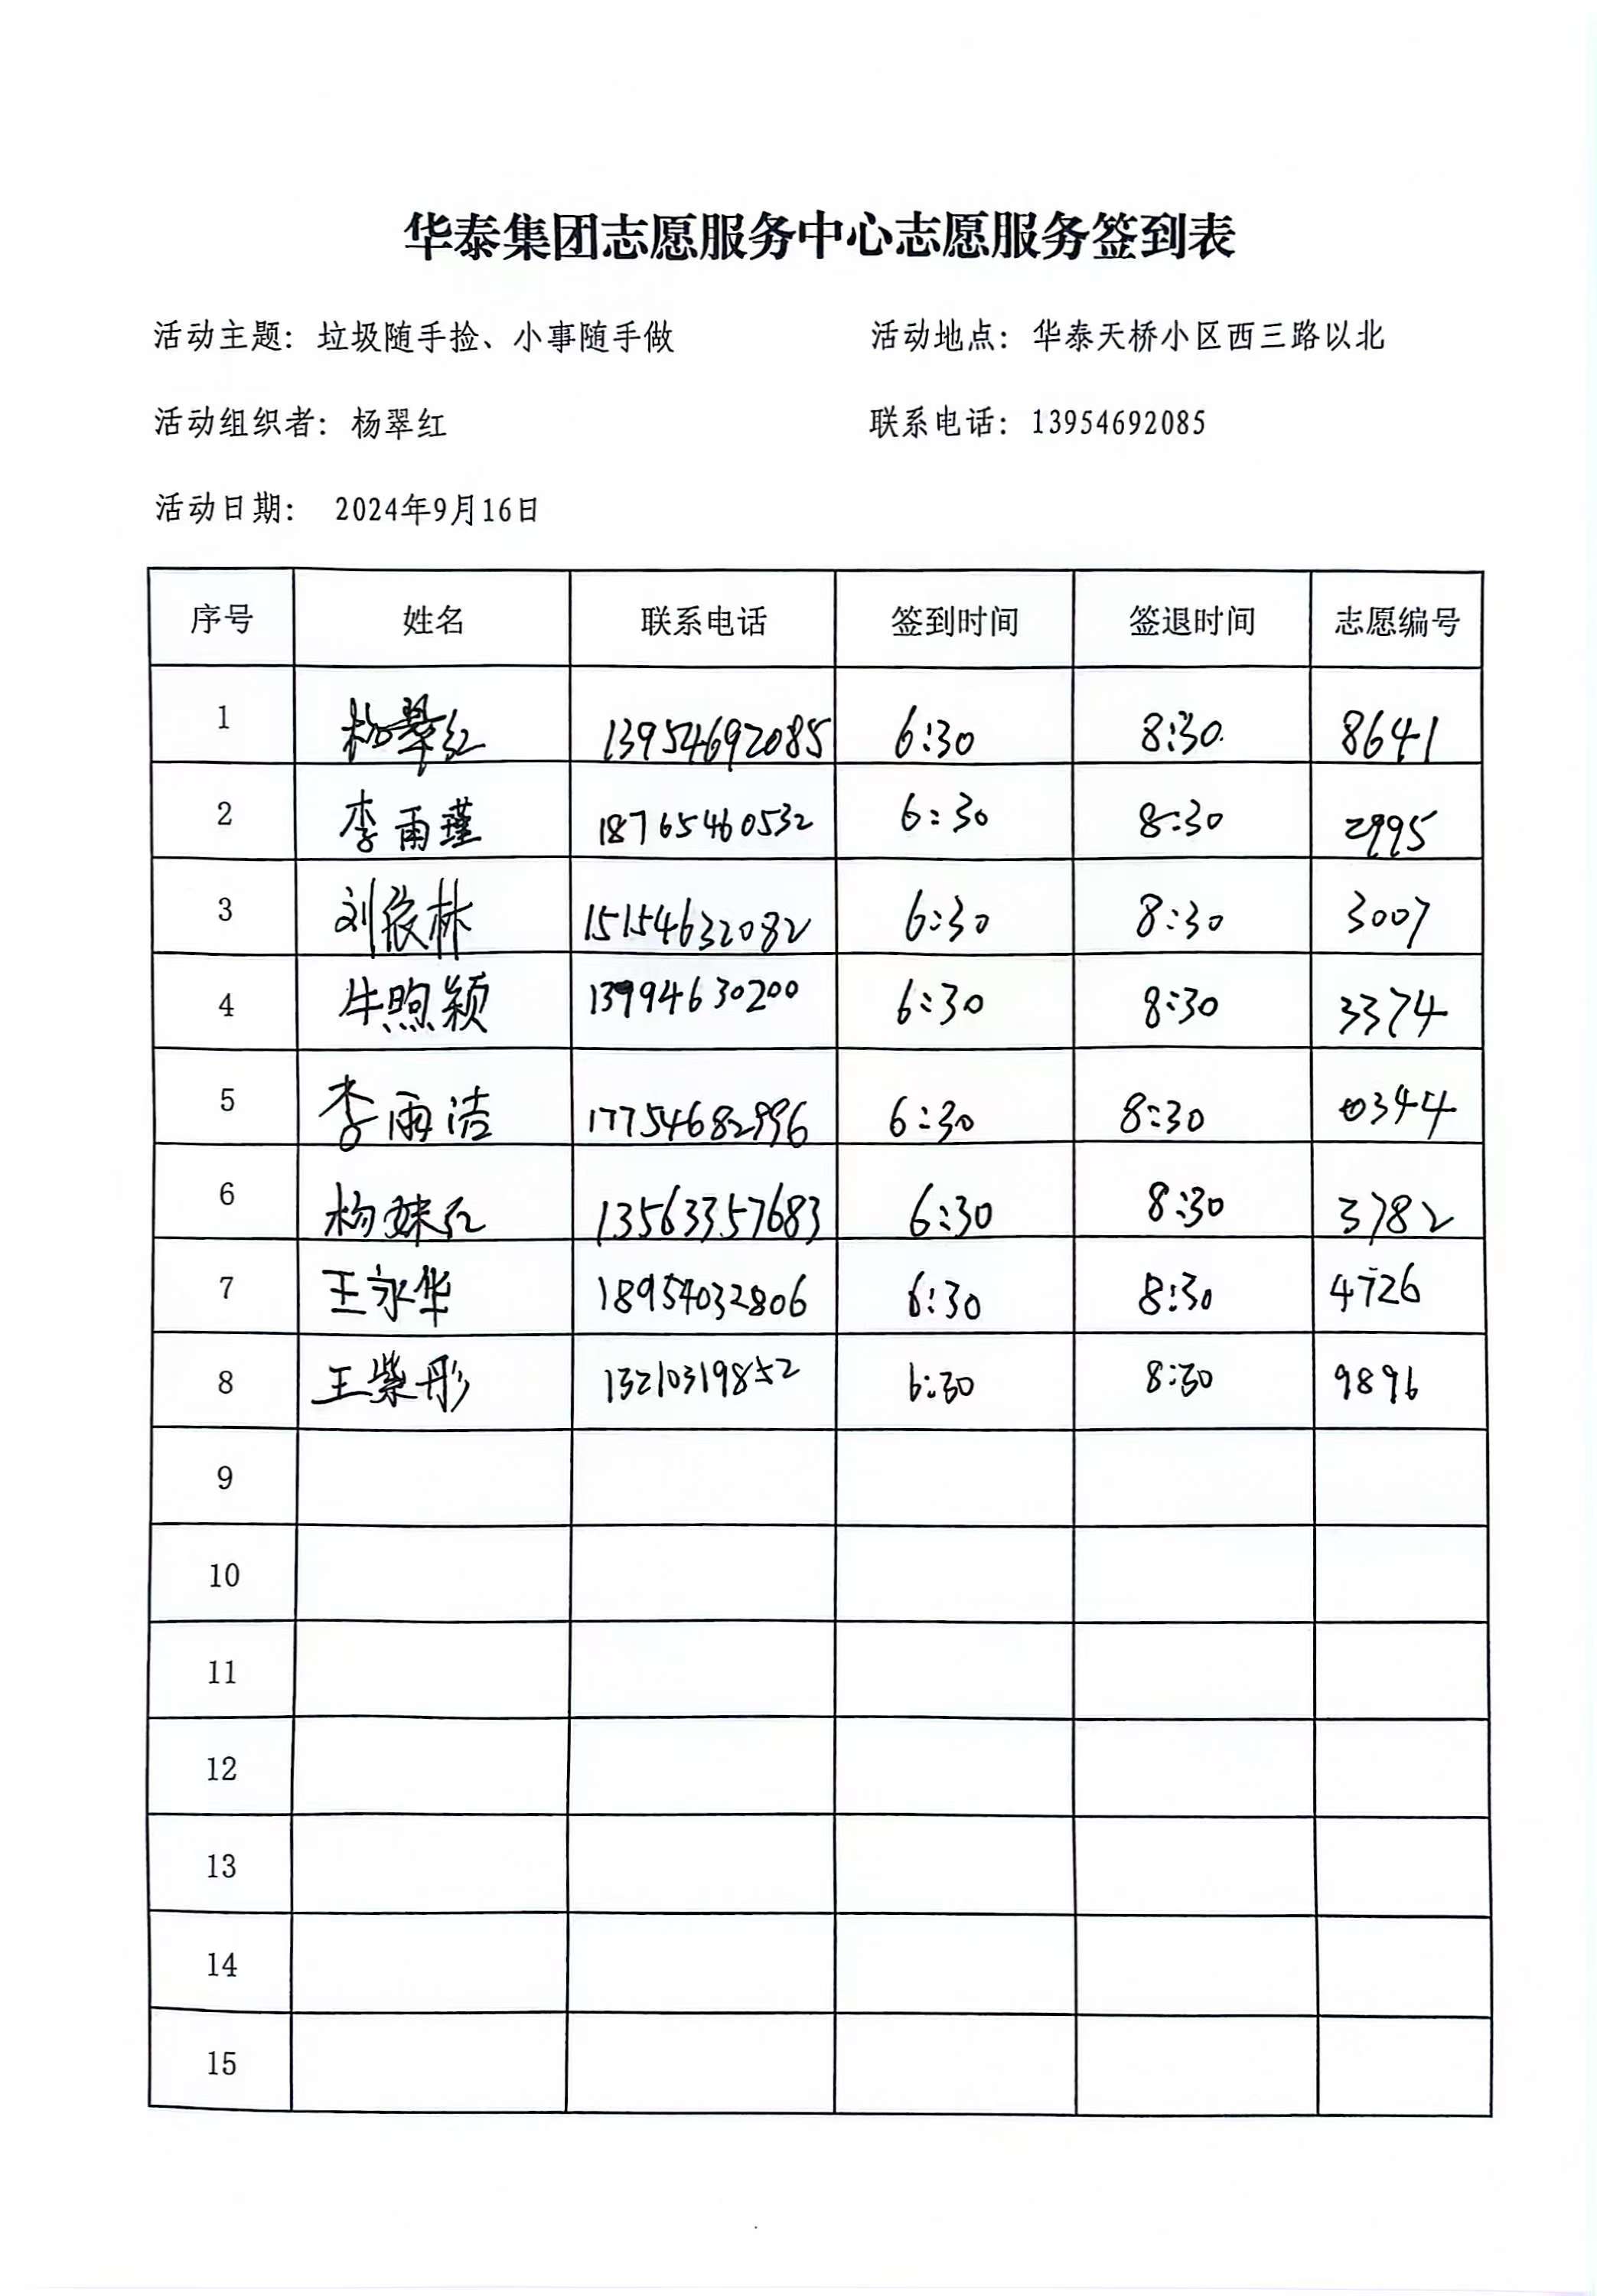 华泰集团志愿服务中心志愿服务签到表
活动主题：垃圾随手捡、小事随手做 活动地点：华泰天桥小区西三路以北
活动组织者：杨翠红 联系电话：13954692085
活动日期： 2024年9月16日
序号 姓名 联系电话 签到时间 签退时间 志愿编号
1 杨翠红 13954692085 6:30 8:30 8641
2 李雨瑾 18765460532 6:30 8:30 2995
3 刘依林 15154632082 6:30 8:30 3007
4 牛煦颖 13994630200 6:30 8:30 3374
5 李雨洁 17754682996 6:30 8:30 0344
6 杨妹红 13563357683 6:30 8:30 3782
7 王永华 18954032806 6:30 8:30 4726
8 王紫彤 13210319852 6:30 8:30 9896
9
10
11
12
13
14
15